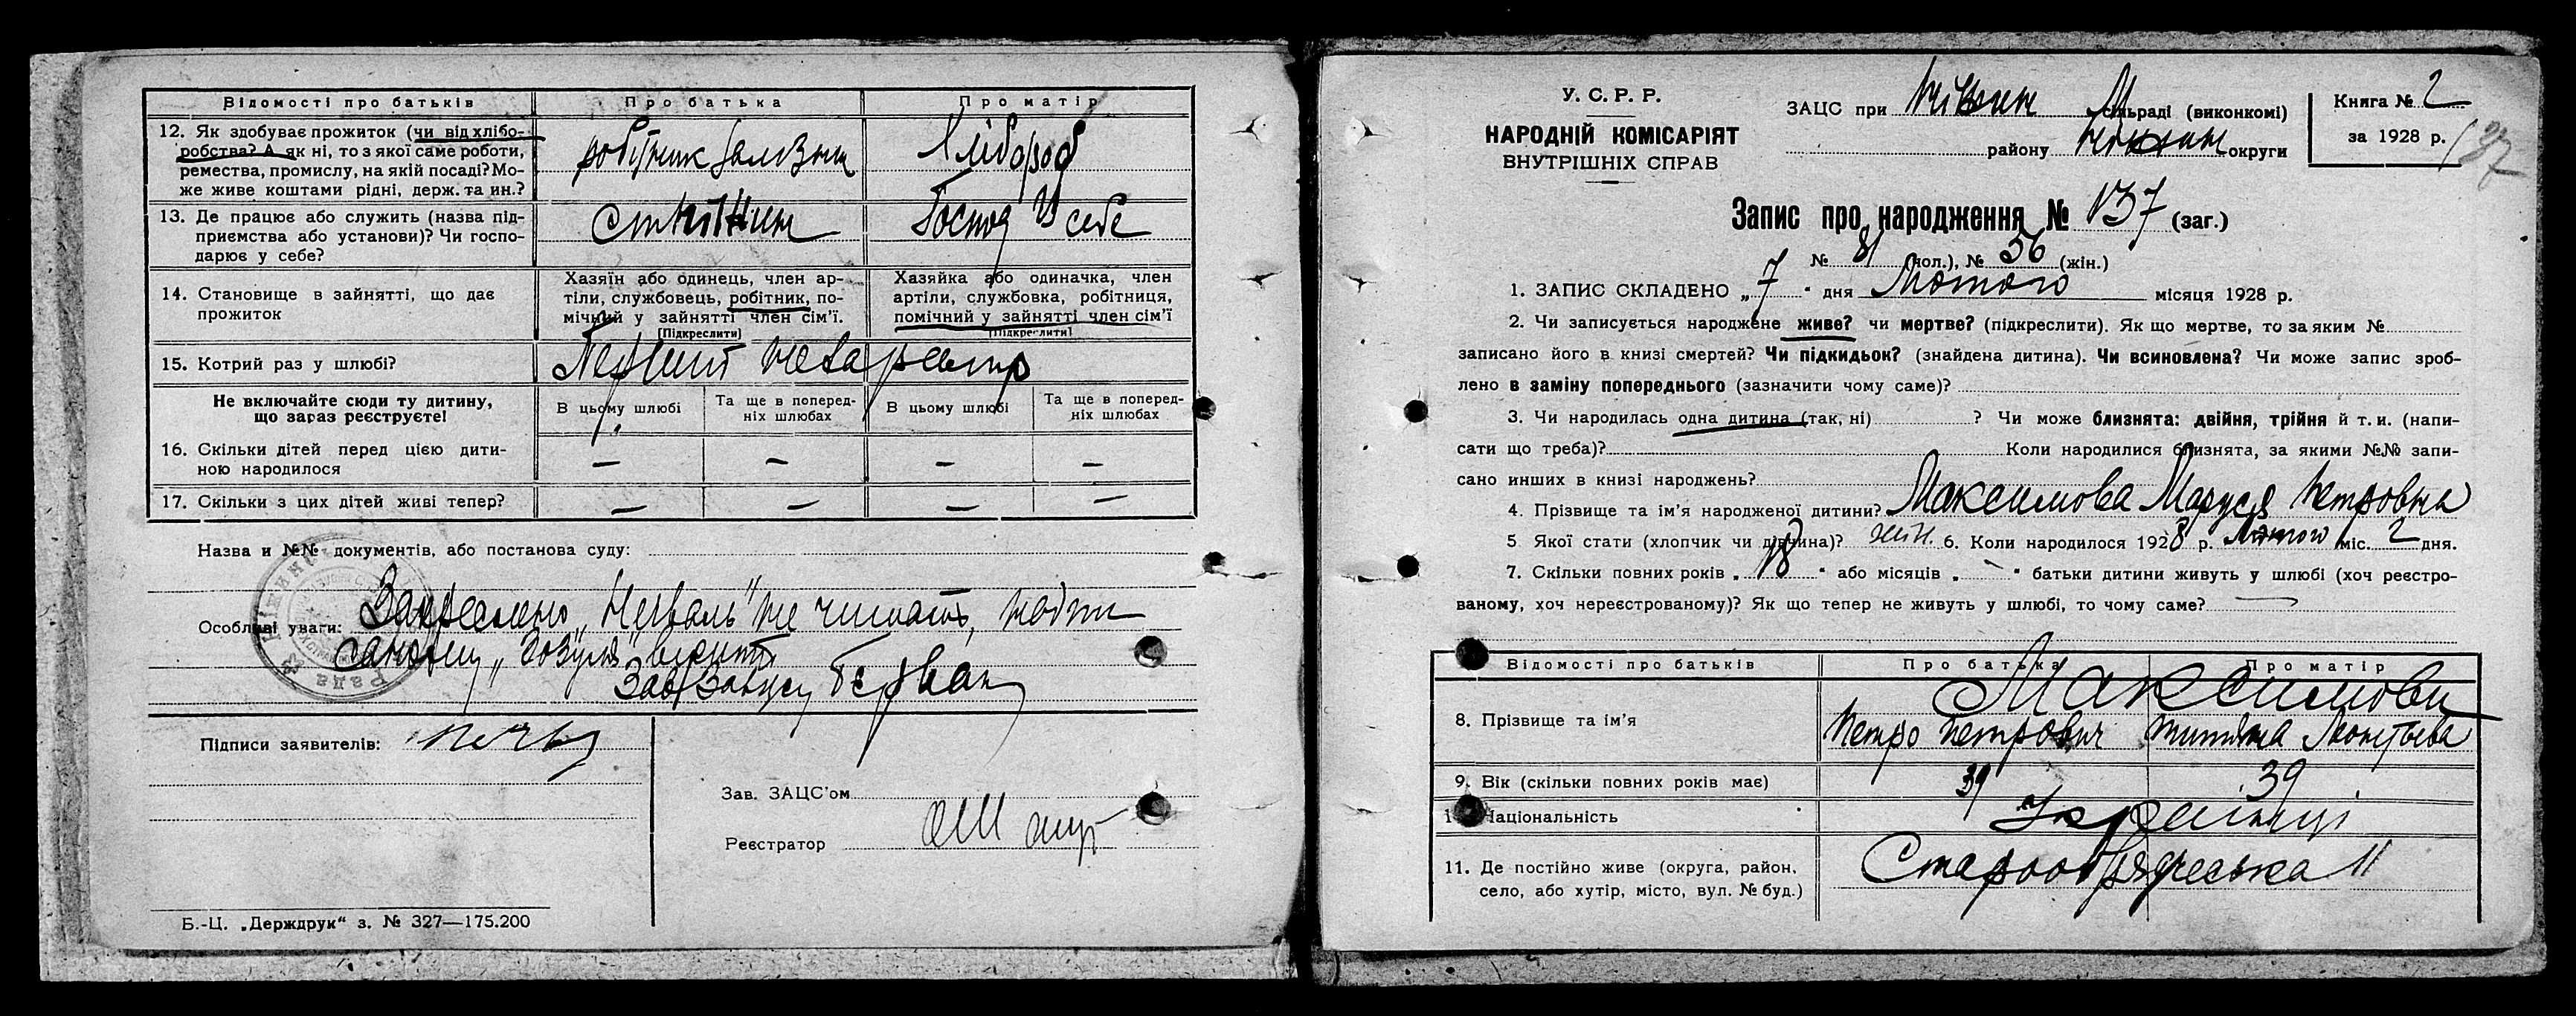 Відомості про батьків
Про батька
Про матір
12. Як здобуває прожиток (чи від хлібо-
робства? А як ні, то з якої саме роботи,
ремества, промислу, на якій посаді? Мо-
же живе коштами рідні, держ. та ин.?
робітник
Хлібороб
13. Де працює або служить (назва під-
приємства або установи)? Чи госпо-
дарює у себе?
ст. Ніжин
Господ. у себе
14. Становище в зайнятті, що дає
прожиток
Хазяїн або одинець, член ар-
тілі, службовець, робітник, по-
мічний у зайнятті член сім'ї.
[Підкреслити]
Хазяйка або одиначка, член
артіли, службовка, робітниця,
помічний у зайнятті член сім'ї
[Підкреслити]
15. Котрий раз у шлюбі?
Перший
Не включайте сюди ту дитину,
що зараз реєструєте!
В цьому шлюбі
Та ще в поперед-
ніх шлюбах
В цьому шлюбі
Та ще в поперед-
ніх шлюбах
16. Скільки дітей перед цією дити-
ною народилося
— — — —
17. Скільки з цих дітей живі тепер?
— — — —
Назва и №№ документів, або постанова суду:
Особливі уваги: Закреслено „ " не читать,
Підписи заявителів:
Зав. ЗАЦС'ом
Реєстратор
Б.-Ц. „Держдрук" з. № 327—175.200
У. С. Р. Р.
НАРОДНІЙ КОМІСАРІЯТ
ВНУТРІШНІХ СПРАВ
ЗАЦС при Ніжин М сільраді (виконкомі)
району Ніжин округи
Книга № 2
за 1928 р.
137
Запис про народження № 137 (заг.)
№ 81 (чол.), № 56 (жін.)
1. ЗАПИС СКЛАДЕНО „7" дня Лютого місяця 1928 р.
2. Чи записується народжене живе? чи мертве? (підкреслити). Як що мертве, то за яким №
записано його в книзі смертей? Чи підкидьок? (знайдена дитина). Чи всиновлена? Чи може запис зроб-
лено в заміну попереднього (зазначити чому саме)?
3. Чи народилась одна дитина (так, ні) ? Чи може близнята: двійня, трійня й т. и. (напи-
сати що треба)? Коли народилися близнята, за якими №№ запи-
сано инших в книзі народжень?
4. Прізвище та ім'я народженої дитини? Максимова Маруся Петровна
5 Якої стати (хлопчик чи дівчина)? жін. 6. Коли народилося 1928 р. Лютого міс. 2 дня.
7. Скільки повних років „18" або місяців „—" батьки дитини живуть у шлюбі (хоч реєстро-
ваному, хоч нереєстрованому)? Як що тепер не живуть у шлюбі, то чому саме?
Відомості про батьків
Про батька
Про матір
8. Прізвище та ім'я
Максимови
Петро Петрович
9. Вік (скільки повних років має)
39
39
Національність
Українці
11. Де постійно живе (округа, район,
село, або хутір, місто, вул. № буд.)
Старообрядческа 11